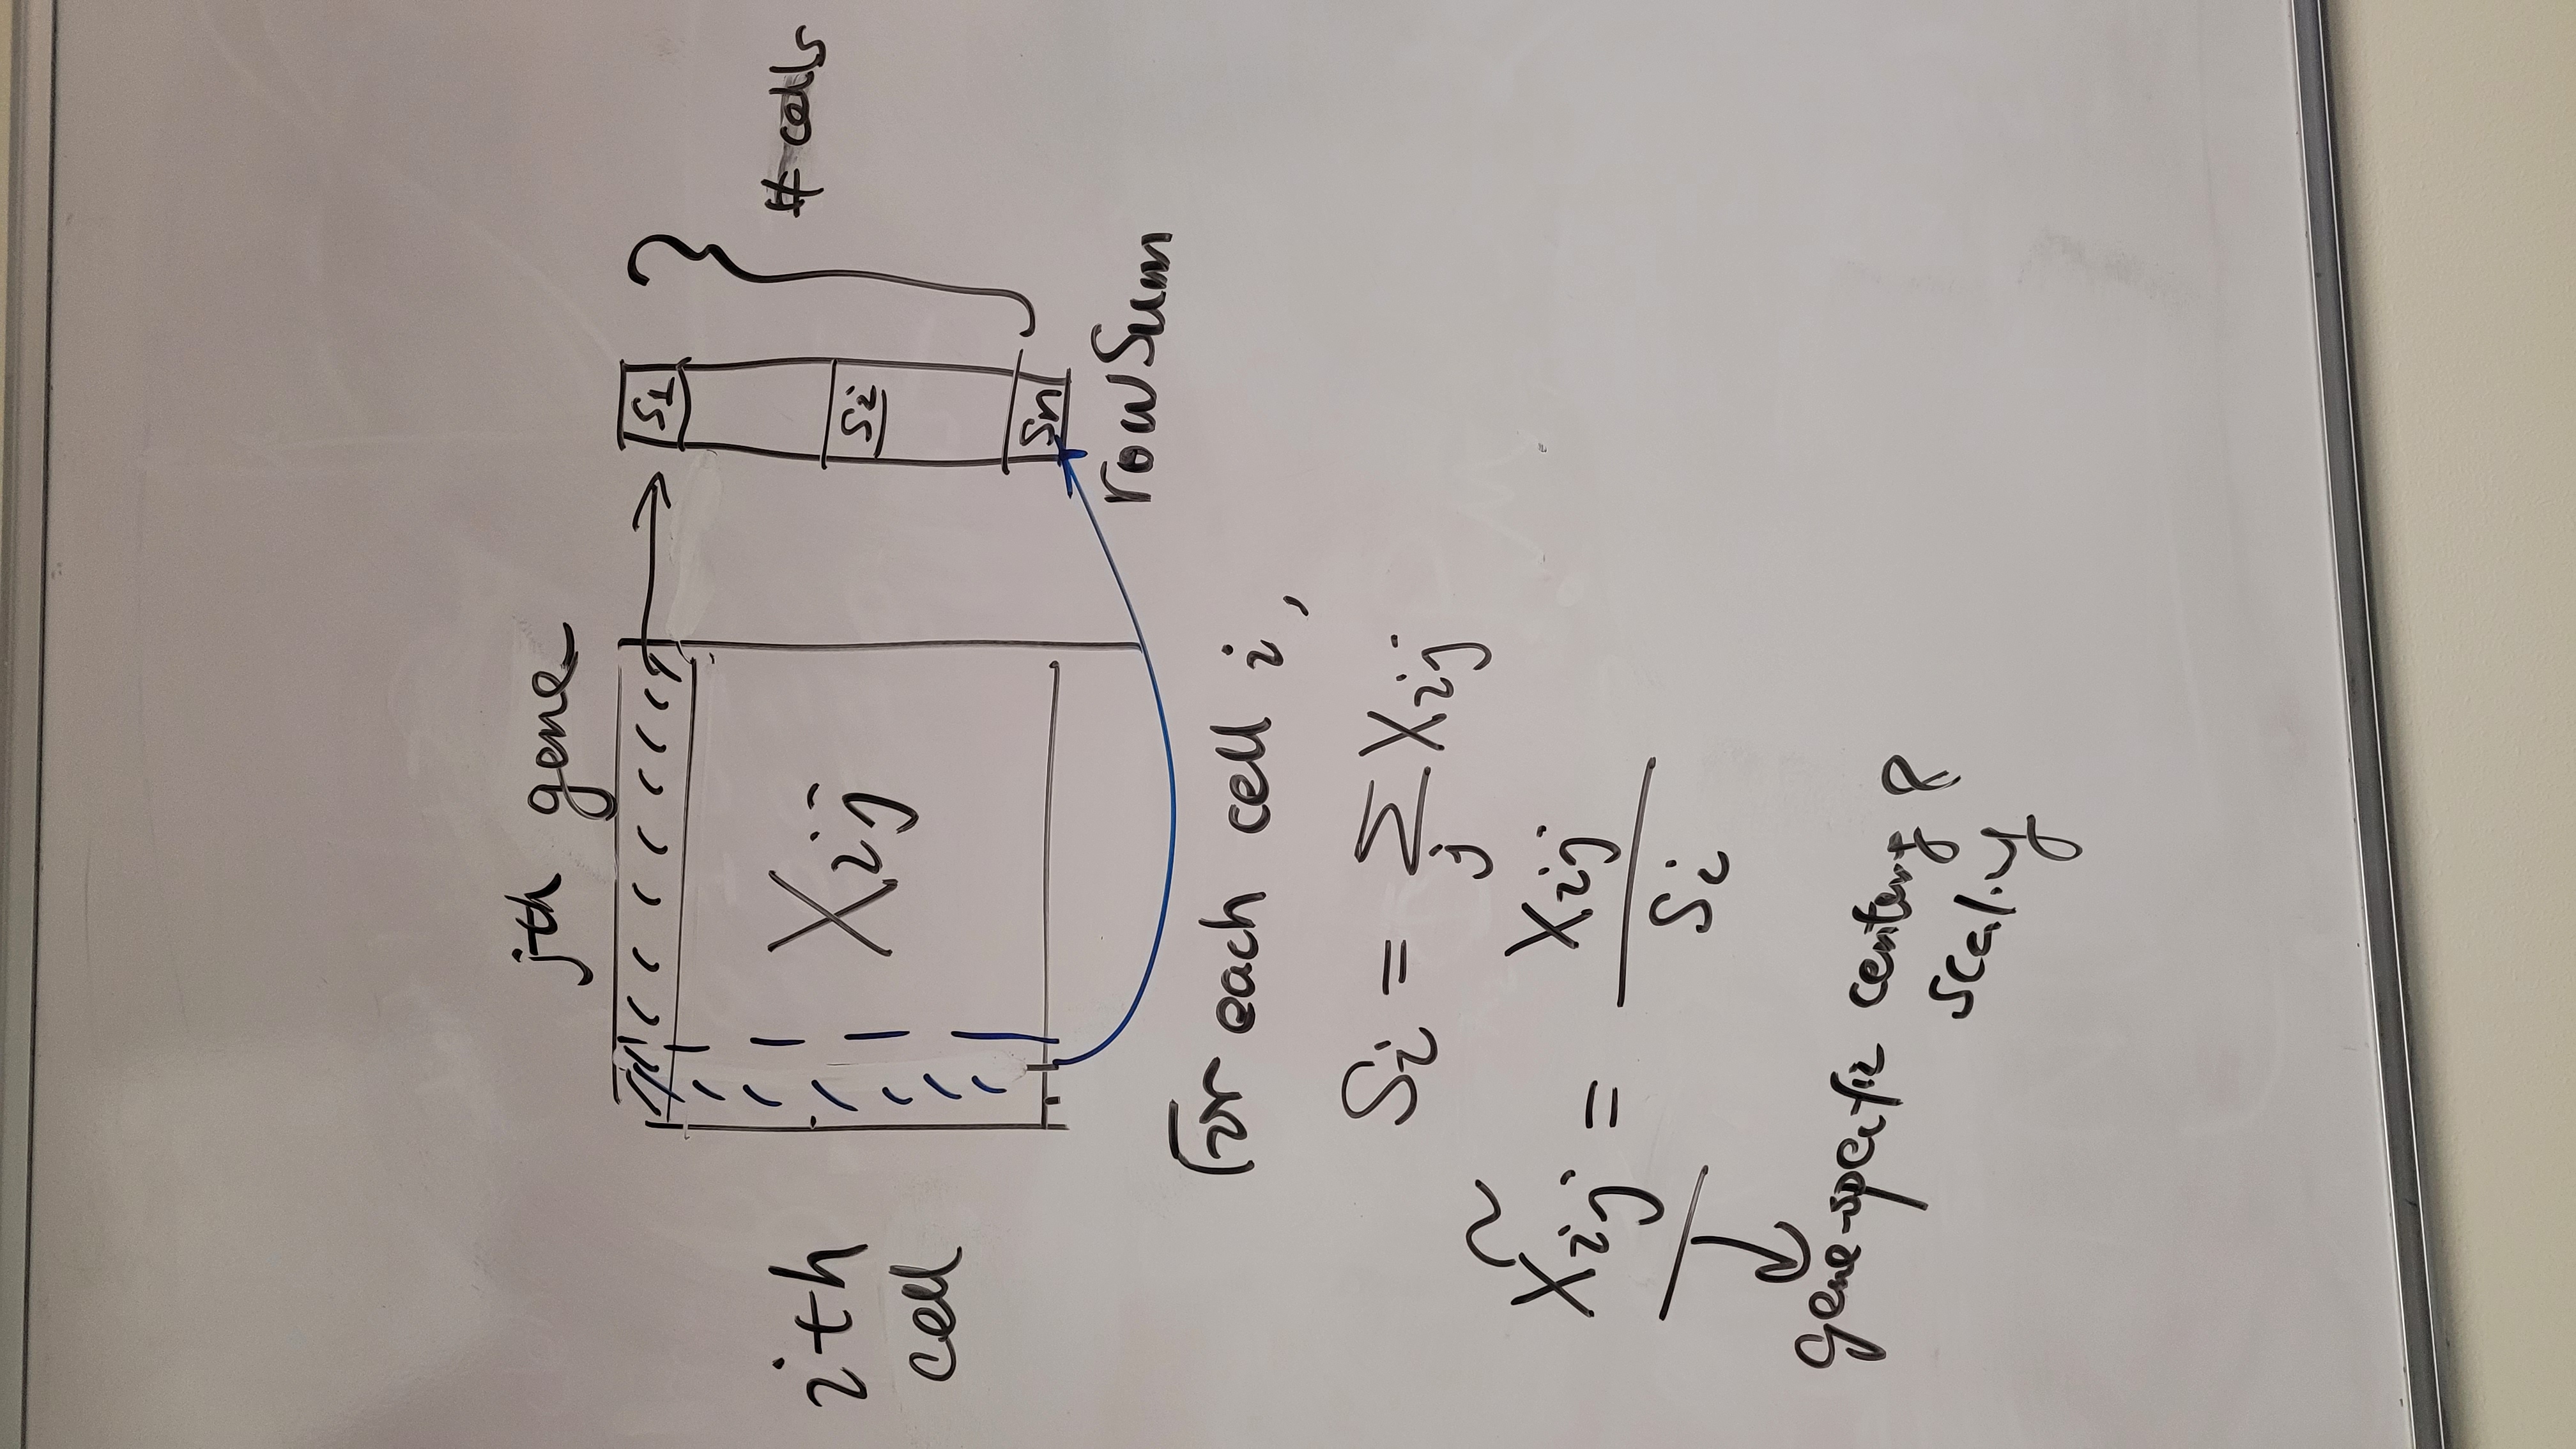 jth gene
S1
ith
cell
Xij
Si
# cells
Sn
rowSum
For each cell i,
Si = Σ Xij
j
X̃ij = Xij / Si
gene-specific centering &
scaling